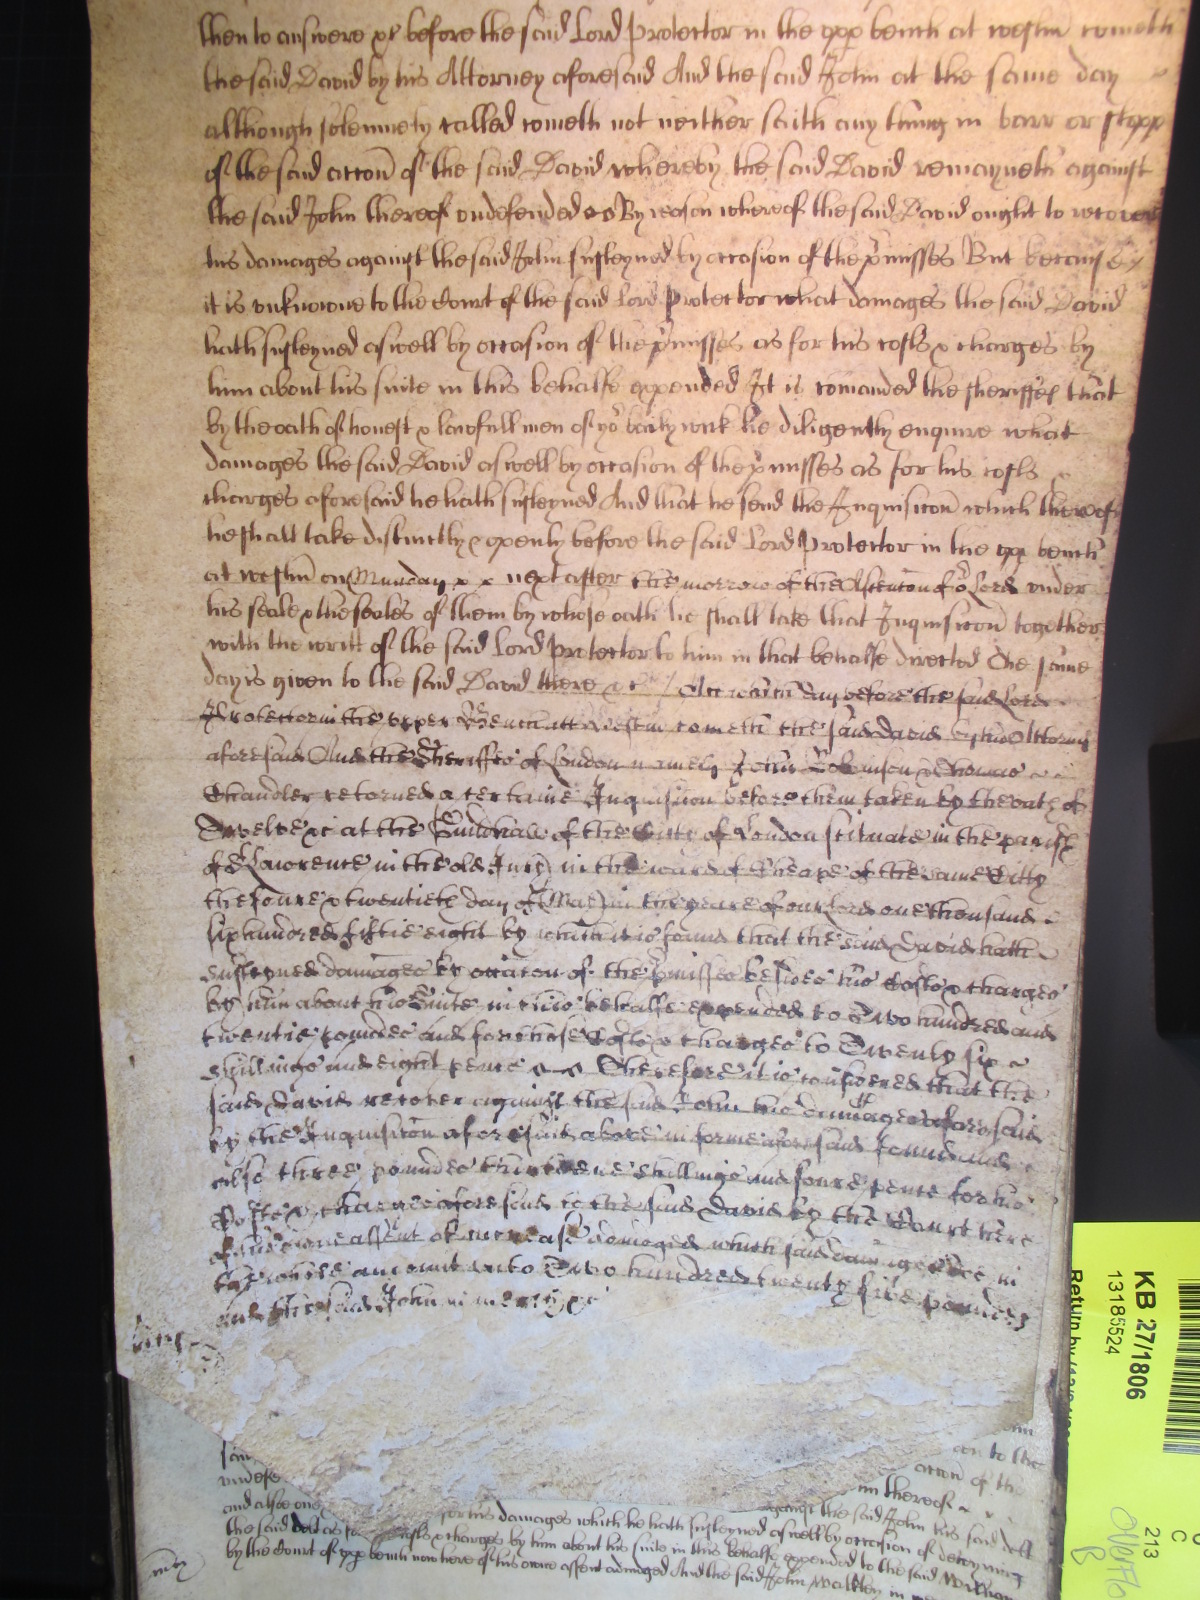 then to answere &c before the said Lord Protector in the upp bench at westm cometh
the said David by his Attorney aforesaid And the said John at the same day
although solemnely called cometh not neither saith any thing in barr or stopp
of the said accon of the said David whereby the said David remayneth against
the said John thereof undefended By reason whereof the said David ought to recover
his damages against the said John susteyned by occasion of the pmisses But because
it is unknowne to the Court of the said Lord Protector what damages the said David
hath susteyned aswell by occasion of the pmisses as for his costs & charges by
him about his suite in this behalfe expended It is comanded the sheriffes that
by the oath of honest & lawfull men of yor bailywick he diligently enquire what
damages the said David aswell by occasion of the pmisses as for his costs &
charges aforesaid he hath susteyned And that he send the Inquisicon which thereof
he shall take distinctly & openly before the said Lord Protector in the upp bench
at westm on Munday next after the morrow of the Ascencon of or Lord under
his seale & the seales of them by whose oath he shall take that Inquisicon together
with the writt of the said Lord Protector to him in that behalfe directed The same
day is given to the said David there &c Att which day before the said Lord
Protector in the upper Bench att Westm cometh the said David by his Attorney
aforesaid And the Sheriffes of London namely John Robinson & Thomas
Chandler returned a certaine Inquisicon before them taken by the oath of
Twelve &c at the Guildhall of the Citty of London scituate in the parish
of St Lawrence in the old Jury in the ward of Cheape of the same Citty
the foure & twentieth day of May in the yeare of our Lord one thousand
six hundred fiftie eight by which it is found that the said David hath
susteyned damages by occasion of the pmisses besides his Costs & charges
by him about his Suite in this behalfe expended to Two hundred and
twentie poundes and for those Costs & charges to Twenty six
shillings and eight pence Therefore it is considered that the
said David recover against the said John his damages aforesaid
by the Inquisicon aforesaid above in forme aforesaid found and
alsoe three poundes thirteene shillings and foure pence for his
Costs & charges aforesaid to the said David by the Court here
of his owne assent of increase adiudged which said damages in
the whole amount unto Two hundred twenty five pounds
and the said John in mercy &c
mcy
said
undefe
and alsoe one
on to the
accon of the
thereof
against the said John his said debt
for his damages which he hath susteyned aswell by occasion of deteyning
the said debt as for costs & charges by him about his suite in this behalfe expended to the said William
by the Court of upp bench now here of his owne assent adiudged And the said John Walkley in
mcy
KB 27/1806
13185524
Return by
213
C